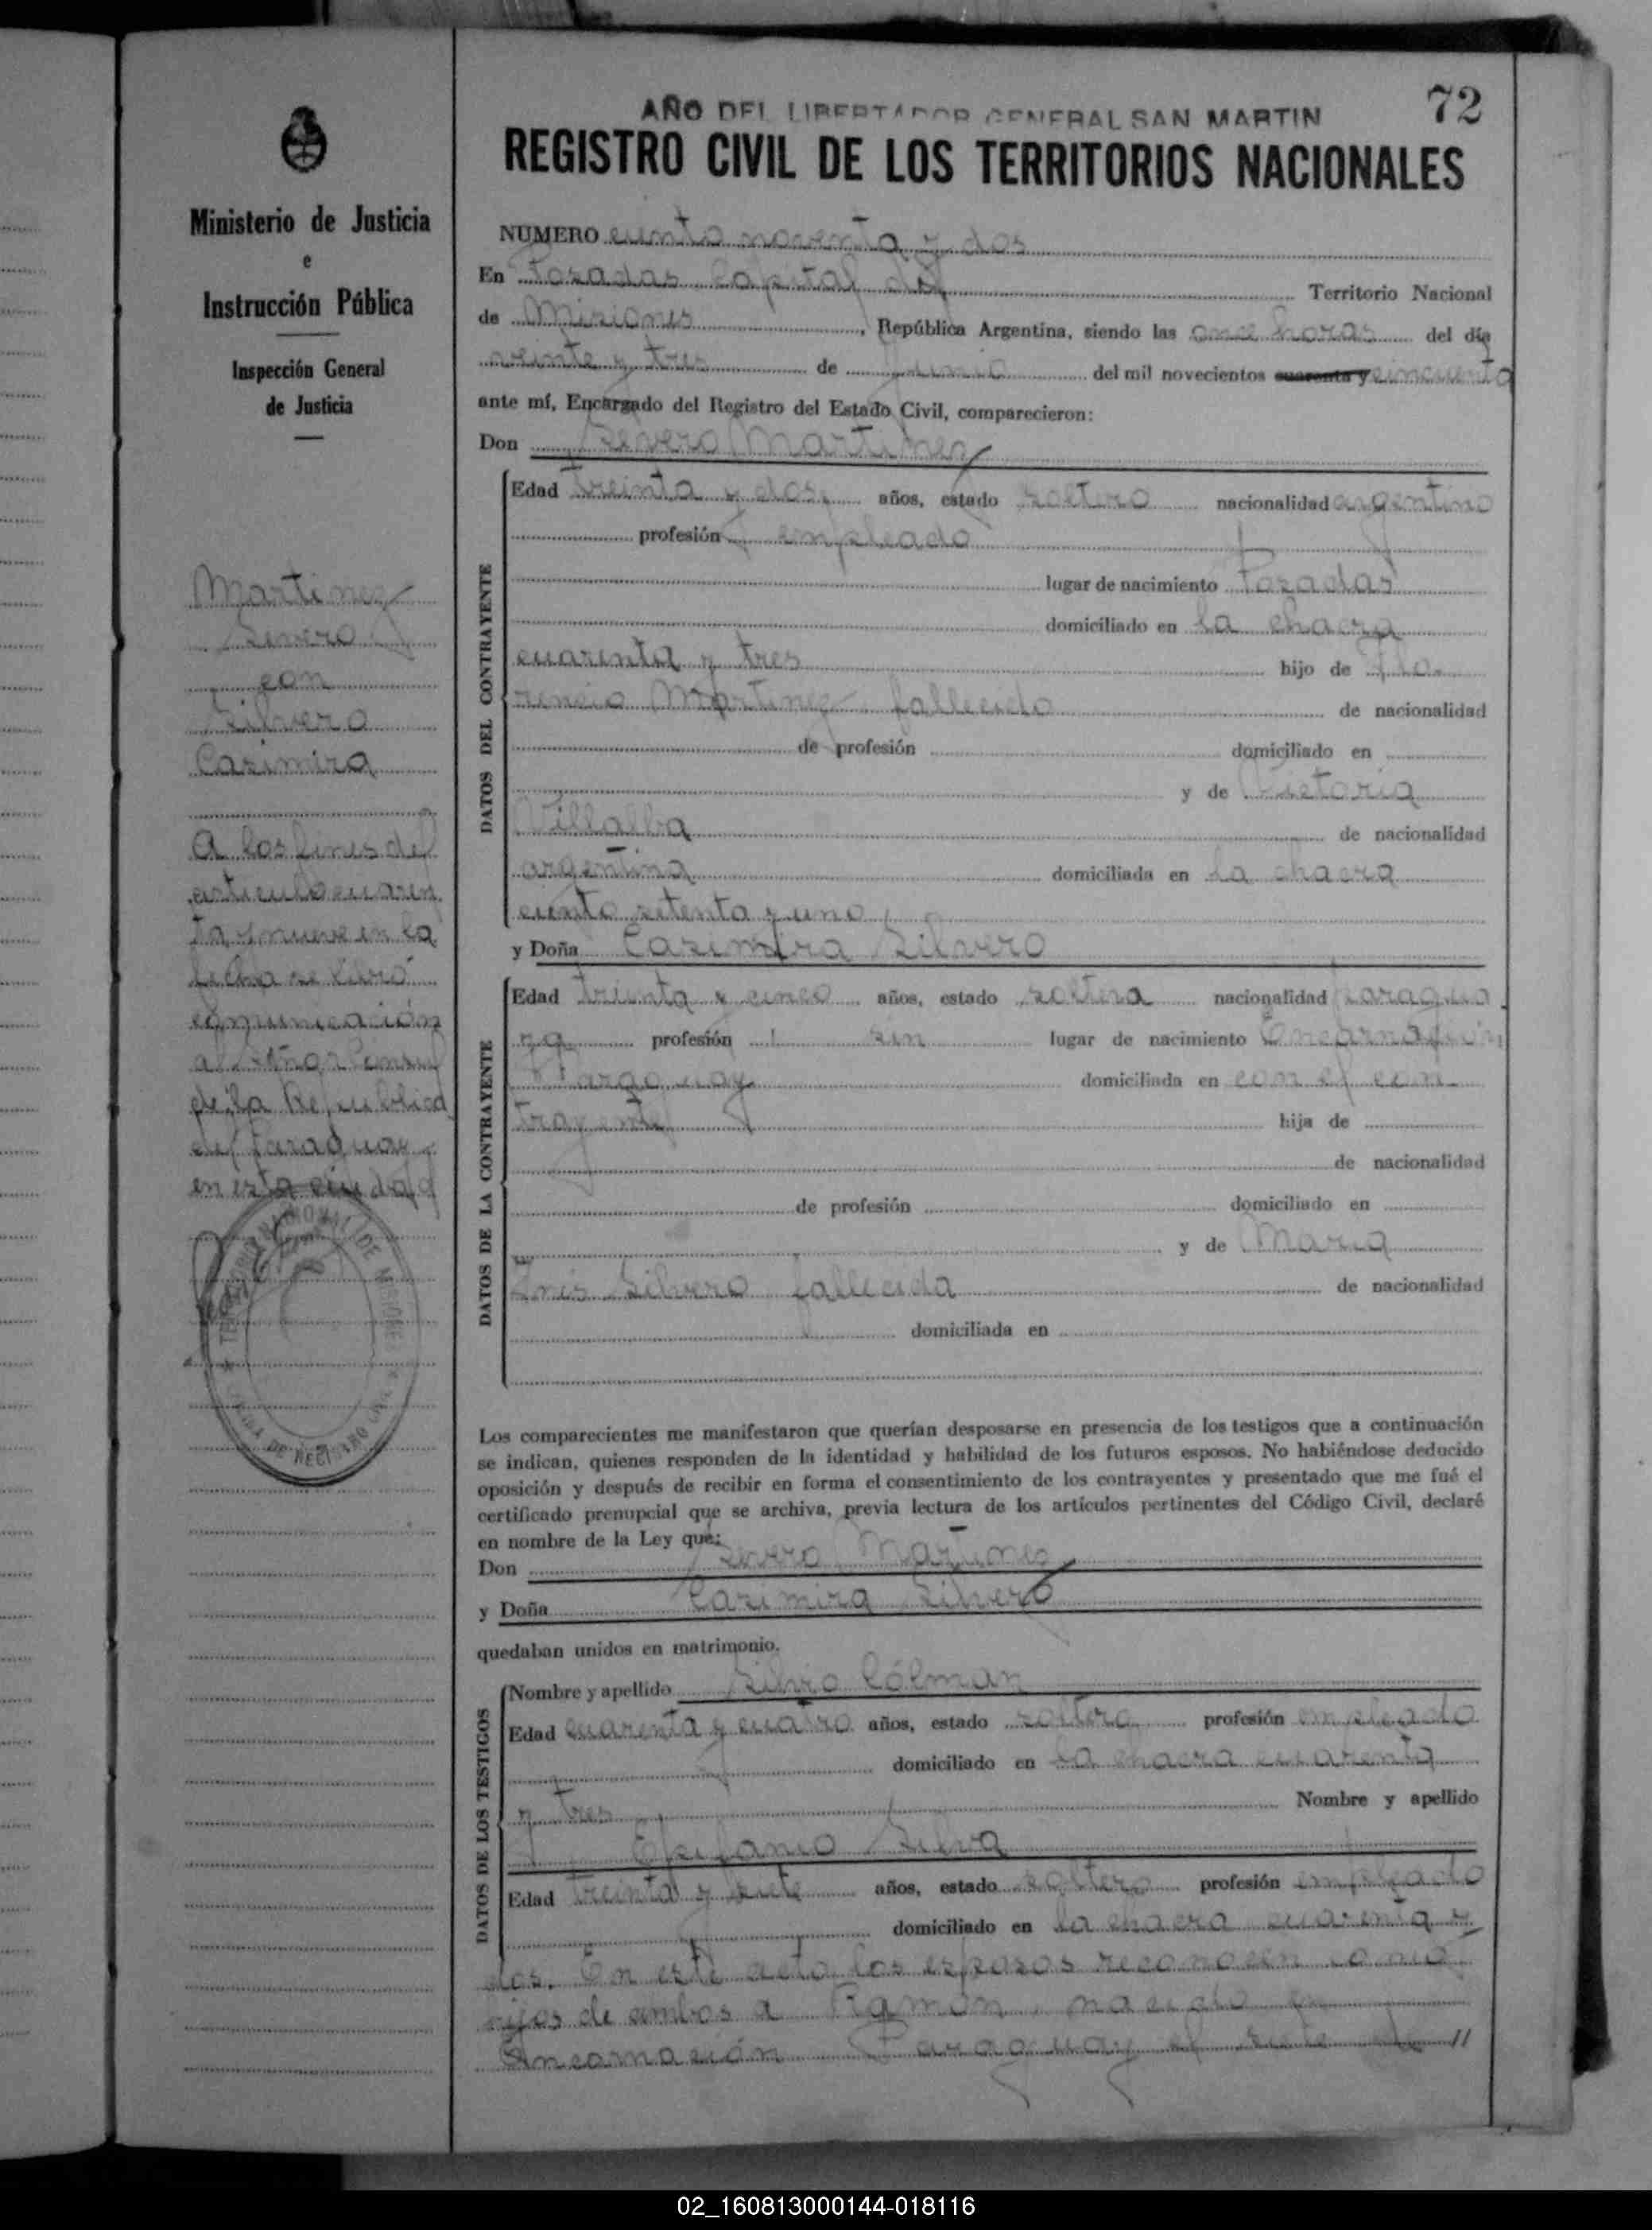 72
AÑO DEL LIBERTADOR GENERAL SAN MARTIN
REGISTRO CIVIL DE LOS TERRITORIOS NACIONALES
Ministerio de Justicia
e
Instrucción Pública
Inspección General
de Justicia
Martinez
Severo
con
Silvero
Casimira
A los fines del
articulo cuaren
ta y nueve en la
fecha se libró
comunicación
al Señor Consul
de la Republica
del Paraguay
en esta ciudad
NUMERO ciento noventa y dos
En Posadas Capital del Territorio Nacional
de Misiones, República Argentina, siendo las once horas del día
veinte y tres de Junio del mil novecientos cuarenta y cincuenta
ante mí, Encargado del Registro del Estado Civil, comparecieron:
Don Severo Martinez
DATOS DEL CONTRAYENTE
Edad treinta y dos años, estado soltero nacionalidad argentino
profesión empleado
lugar de nacimiento Posadas
domiciliado en la chacra
cuarenta y tres hijo de Flo-
rencio Martinez fallecido de nacionalidad
de profesión domiciliado en
y de Victoria
Villalba de nacionalidad
argentina domiciliada en la chacra
ciento setenta y uno
y Doña Casimira Silvero
DATOS DE LA CONTRAYENTE
Edad treinta y cinco años, estado soltera nacionalidad paragua
ya profesión sin lugar de nacimiento Encarnación
Paraguay domiciliada en con el con-
trayente hija de
de nacionalidad
de profesión domiciliado en
y de Maria
Inés Silvero fallecida de nacionalidad
domiciliada en
Los comparecientes me manifestaron que querían desposarse en presencia de los testigos que a continuación
se indican, quienes responden de la identidad y habilidad de los futuros esposos. No habiéndose deducido
oposición y después de recibir en forma el consentimiento de los contrayentes y presentado que me fué el
certificado prenupcial que se archiva, previa lectura de los artículos pertinentes del Código Civil, declaré
en nombre de la Ley que:
Don Severo Martinez
y Doña Casimira Silvero
quedaban unidos en matrimonio.
DATOS DE LOS TESTIGOS
Nombre y apellido Silvio Cólman
Edad cuarenta y cuatro años, estado soltero profesión empleado
domiciliado en la chacra cuarenta
y tres Nombre y apellido
Epifanio Silva
Edad treinta y siete años, estado soltero profesión empleado
domiciliado en la chacra cuarenta y
dos. En este acto los esposos reconocen como
hijos de ambos a Ramón, nacido en
Encarnación Paraguay el siete de //
02_160813000144-018116